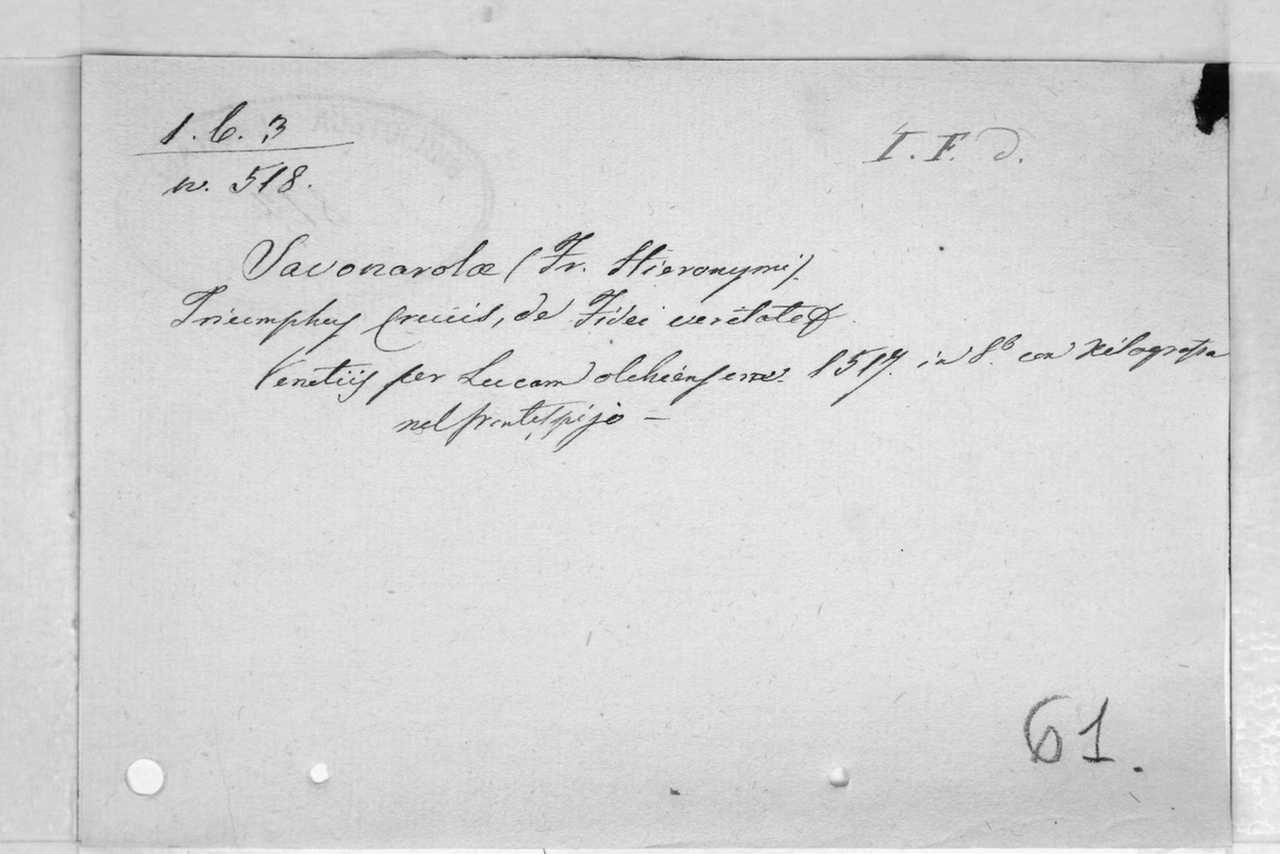 1. b. 3
n. 518.
I. F. d.
Savonarolæ (Fr. Hieronymi).
Triumphus Crucis, de Fidei veritate
Venetiis per Lucam olchiensem. 1517. in 8.º con xilografia
nel frontespizio —
61.